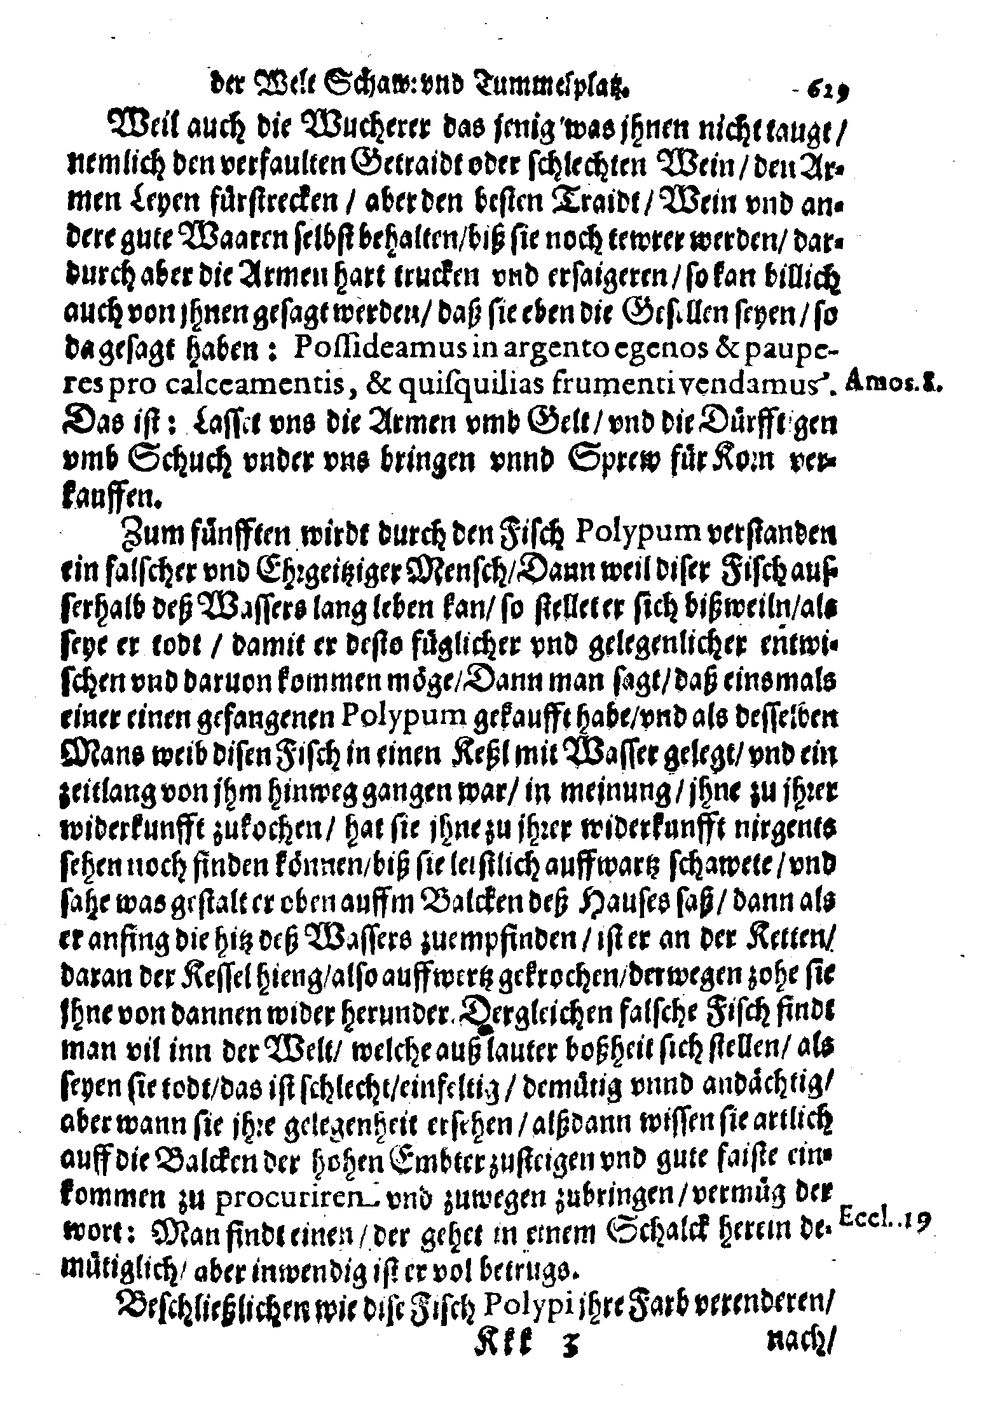 der Welt Schaw: vnd Tummelplatz. 619
Weil auch die Wucherer das jenig was jhnen nicht taugt /
nemlich den verfaulten Getraidt oder schlechten Wein / den Ar-
men Leyen fürstrecken / aber den besten Traidt / Wein vnd an-
dere gute Waaren selbst behalten / biß sie noch tewrer werden / dar-
durch aber die Armen hart trucken vnd ersaigeren / so kan billich
auch von jhnen gesagt werden / daß sie eben die Gesellen seyen / so
da gesagt haben : Possideamus in argento egenos & paupe-
res pro calceamentis, & quisquilias frumenti vendamus. Amos. 8.
Das ist : Lasset vns die Armen vmb Gelt / vnd die Dürfftigen
vmb Schuch vnder vns bringen vnnd Sprew für Korn ver-
kauffen.
Zum fünfften wirdt durch den Fisch Polypum verstanden
ein falscher vnd Ehrgeitziger Mensch / Dann weil diser Fisch aus-
serhalb deß Wassers lang leben kan / so stellet er sich bißweiln / als
seye er todt / damit er desto füglicher vnd gelegenlicher entwi-
schen vnd daruon kommen möge / Dann man sagt / daß einsmals
einer einen gefangenen Polypum gekaufft habe / vnd als desselben
Mans weib disen Fisch in einen Keßl mit Wasser gelegt / vnd ein
zeitlang von jhm hinweg gangen war / in meinung / jhne zu jhrer
widerkunfft zukochen / hat sie jhne zu jhrer widerkunfft nirgents
sehen noch finden können / biß sie leistlich auffwartz schawete / vnd
sahe was gestalt er oben auffm Balcken deß Hauses saß / dann als
er anfing die hitz deß Wassers zuempfinden / ist er an der Ketten /
daran der Kessel hieng / also auffwertz gekrochen / derwegen zohe sie
jhne von dannen wider herunder. Dergleichen falsche Fisch findt
man vil inn der Welt / welche auß lauter boßheit sich stellen / als
seyen sie todt / das ist schlecht / einfeltig / demütig vnnd andächtig /
aber wann sie jhre gelegenheit ersehen / alßdann wissen sie artlich
auff die Balcken der hohen Embter zusteigen vnd gute faiste ein-
kommen zu procuriren vnd zuwegen zubringen / vermüg der
wort : Man findt einen / der gehet in einem Schalck herein de- Eccl. 19
mütiglich / aber inwendig ist er vol betrugs.
Beschließlichen wie dise Fisch Polypi jhre Farb verenderen /
Kkk 3 nach /